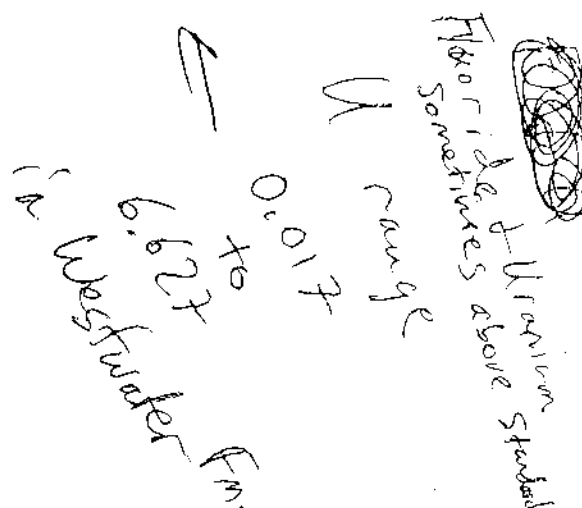 Fluoride & Uranium
sometimes above standard
U range
0.017
to
6.627
in Westwater Fm.